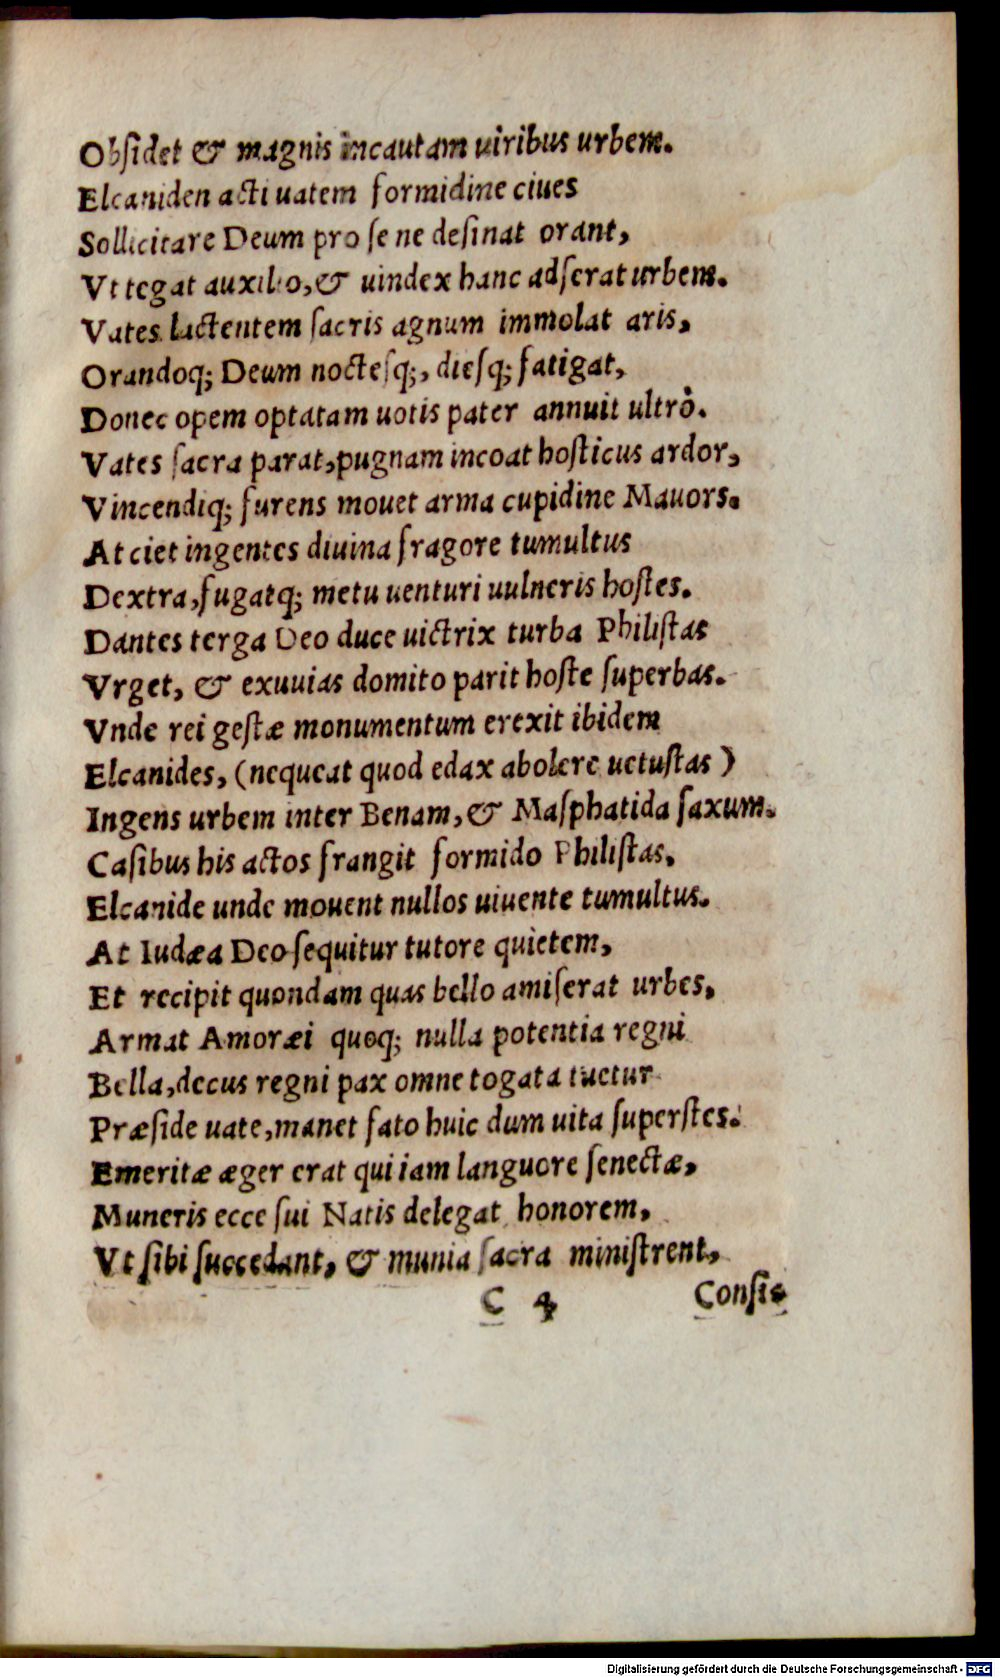 Obſidet & magnis incautam uiribus urbem.
Elcaniden acti uatem formidine ciues
Sollicitare Deum pro ſe ne deſinat orant,
Vt tegat auxilio, & uindex hanc adſerat urbem.
Vates lactentem ſacris agnum immolat aris,
Orandoq; Deum nocteſq;, dieſq; fatigat,
Donec opem optatam uotis pater annuit ultrò.
Vates ſacra parat, pugnam incoat hoſticus ardor,
Vincendiq; furens mouet arma cupidine Mauors.
At ciet ingentes diuina fragore tumultus
Dextra, fugatq; metu uenturi uulneris hoſtes.
Dantes terga Deo duce uictrix turba Philiſtas
Vrget, & exuuias domito parit hoſte ſuperbas.
Vnde rei geſtæ monumentum erexit ibidem
Elcanides, (nequeat quod edax abolere uetuſtas)
Ingens urbem inter Benam, & Maſphatida ſaxum.
Caſibus his actos frangit formido Philiſtas,
Elcanide unde mouent nullos uiuente tumultus.
At Iudæa Deo ſequitur tutore quietem,
Et recipit quondam quas bello amiſerat urbes,
Armat Amoræi quoq; nulla potentia regni
Bella, decus regni pax omne togata tuetur
Præſide uate, manet fato huic dum uita ſuperſtes.
Emeritæ æger erat qui iam languore ſenectæ,
Muneris ecce ſui Natis delegat honorem,
Vt ſibi ſuccedant, & munia ſacra miniſtrent,
C 4 Conſi-
Digitalisierung gefördert durch die Deutsche Forschungsgemeinschaft - DFG